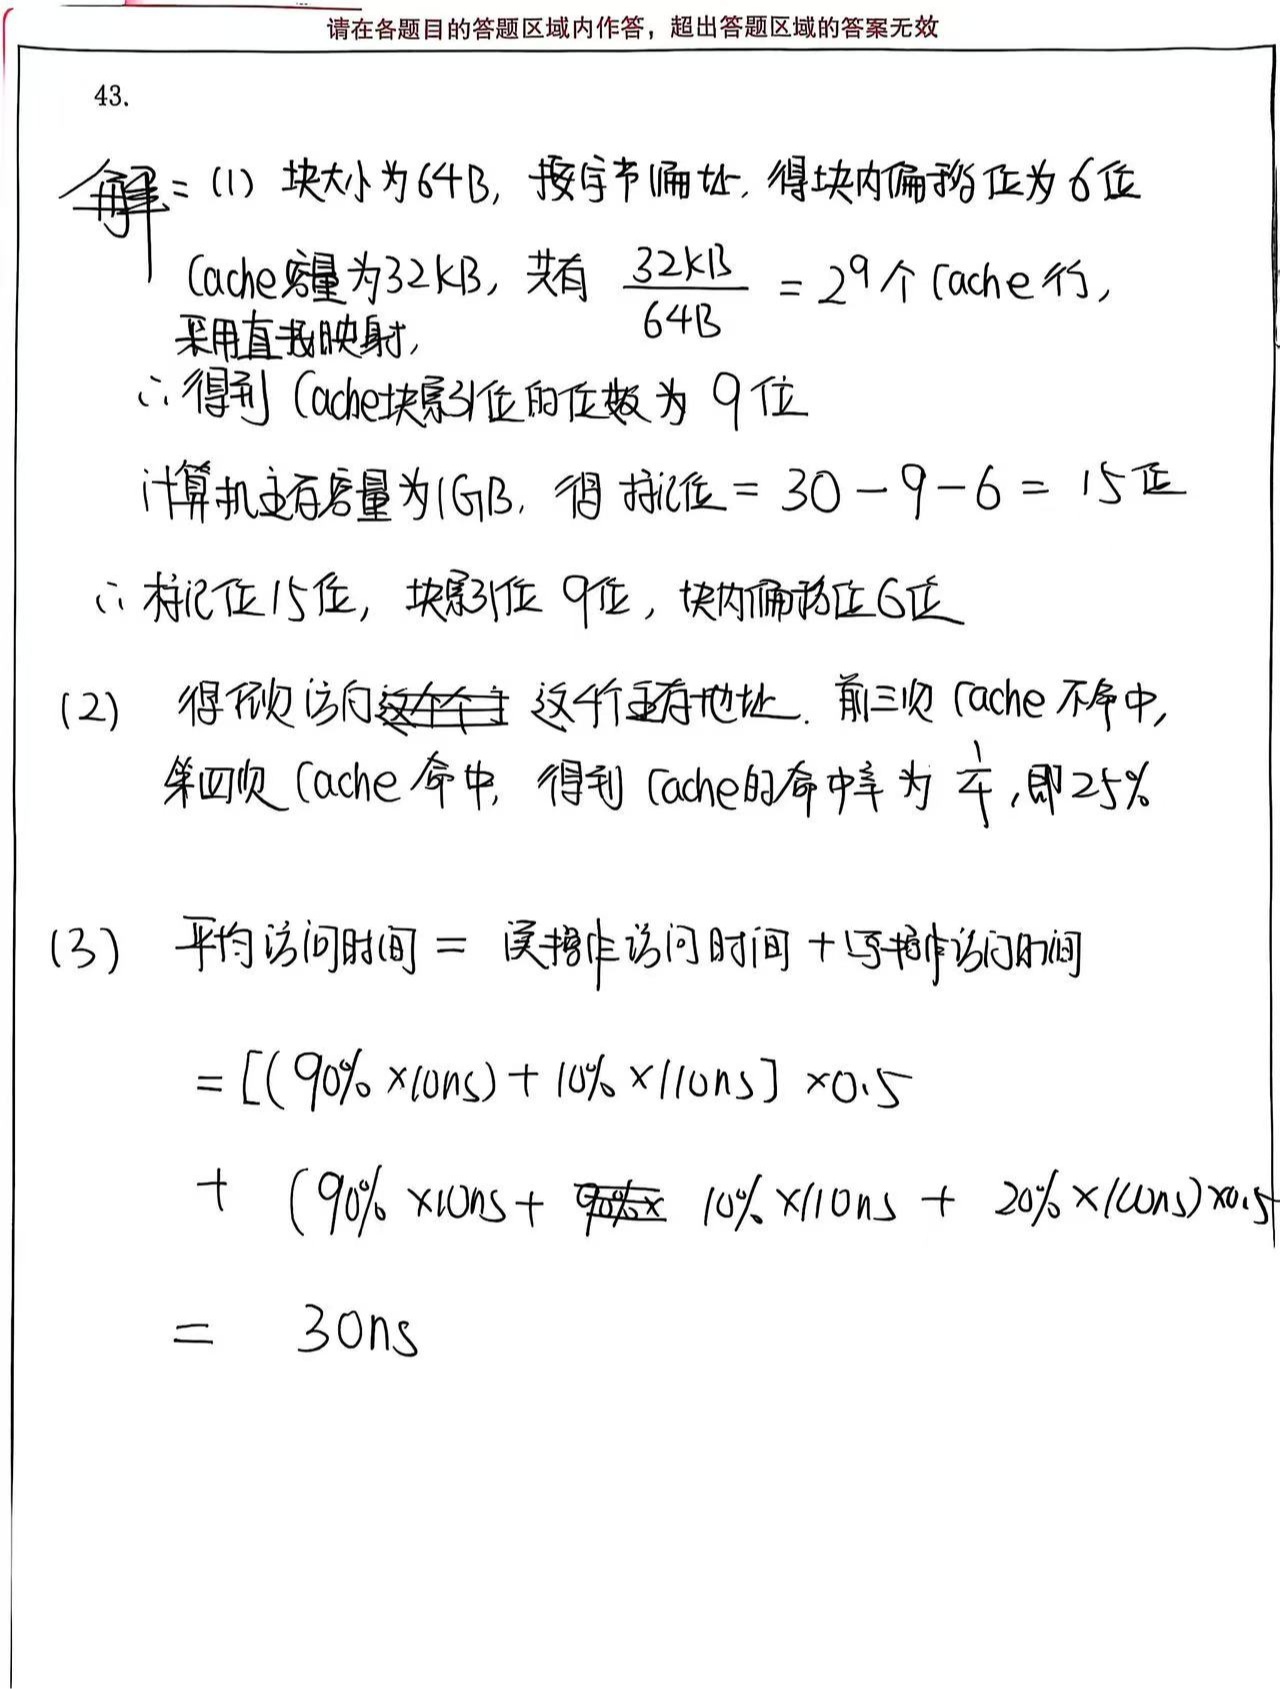 请在各题目的答题区域内作答，超出答题区域的答案无效
43.
解：(1) 块大小为64B，按字节编址，得块内偏移位为6位
Cache容量为32KB，共有 32KB/64B = 2⁹个Cache行，
采用直接映射，
∴得到Cache块索引位的位数为 9位
计算机主存容量为1GB，得 标记位 = 30 - 9 - 6 = 15位
∴标记位15位，块索引位 9位，块内偏移位6位
(2) 得依次访问 这4个主存地址，前三次Cache不命中，
第四次Cache命中，得到Cache的命中率为 1/4，即25%
(3) 平均访问时间 = 读操作访问时间 + 写操作访问时间
= [(90% ×10ns) + 10% ×110ns] ×0.5
+ (90% ×10ns + 10% ×110ns + 20% ×100ns) ×0.5
= 30ns